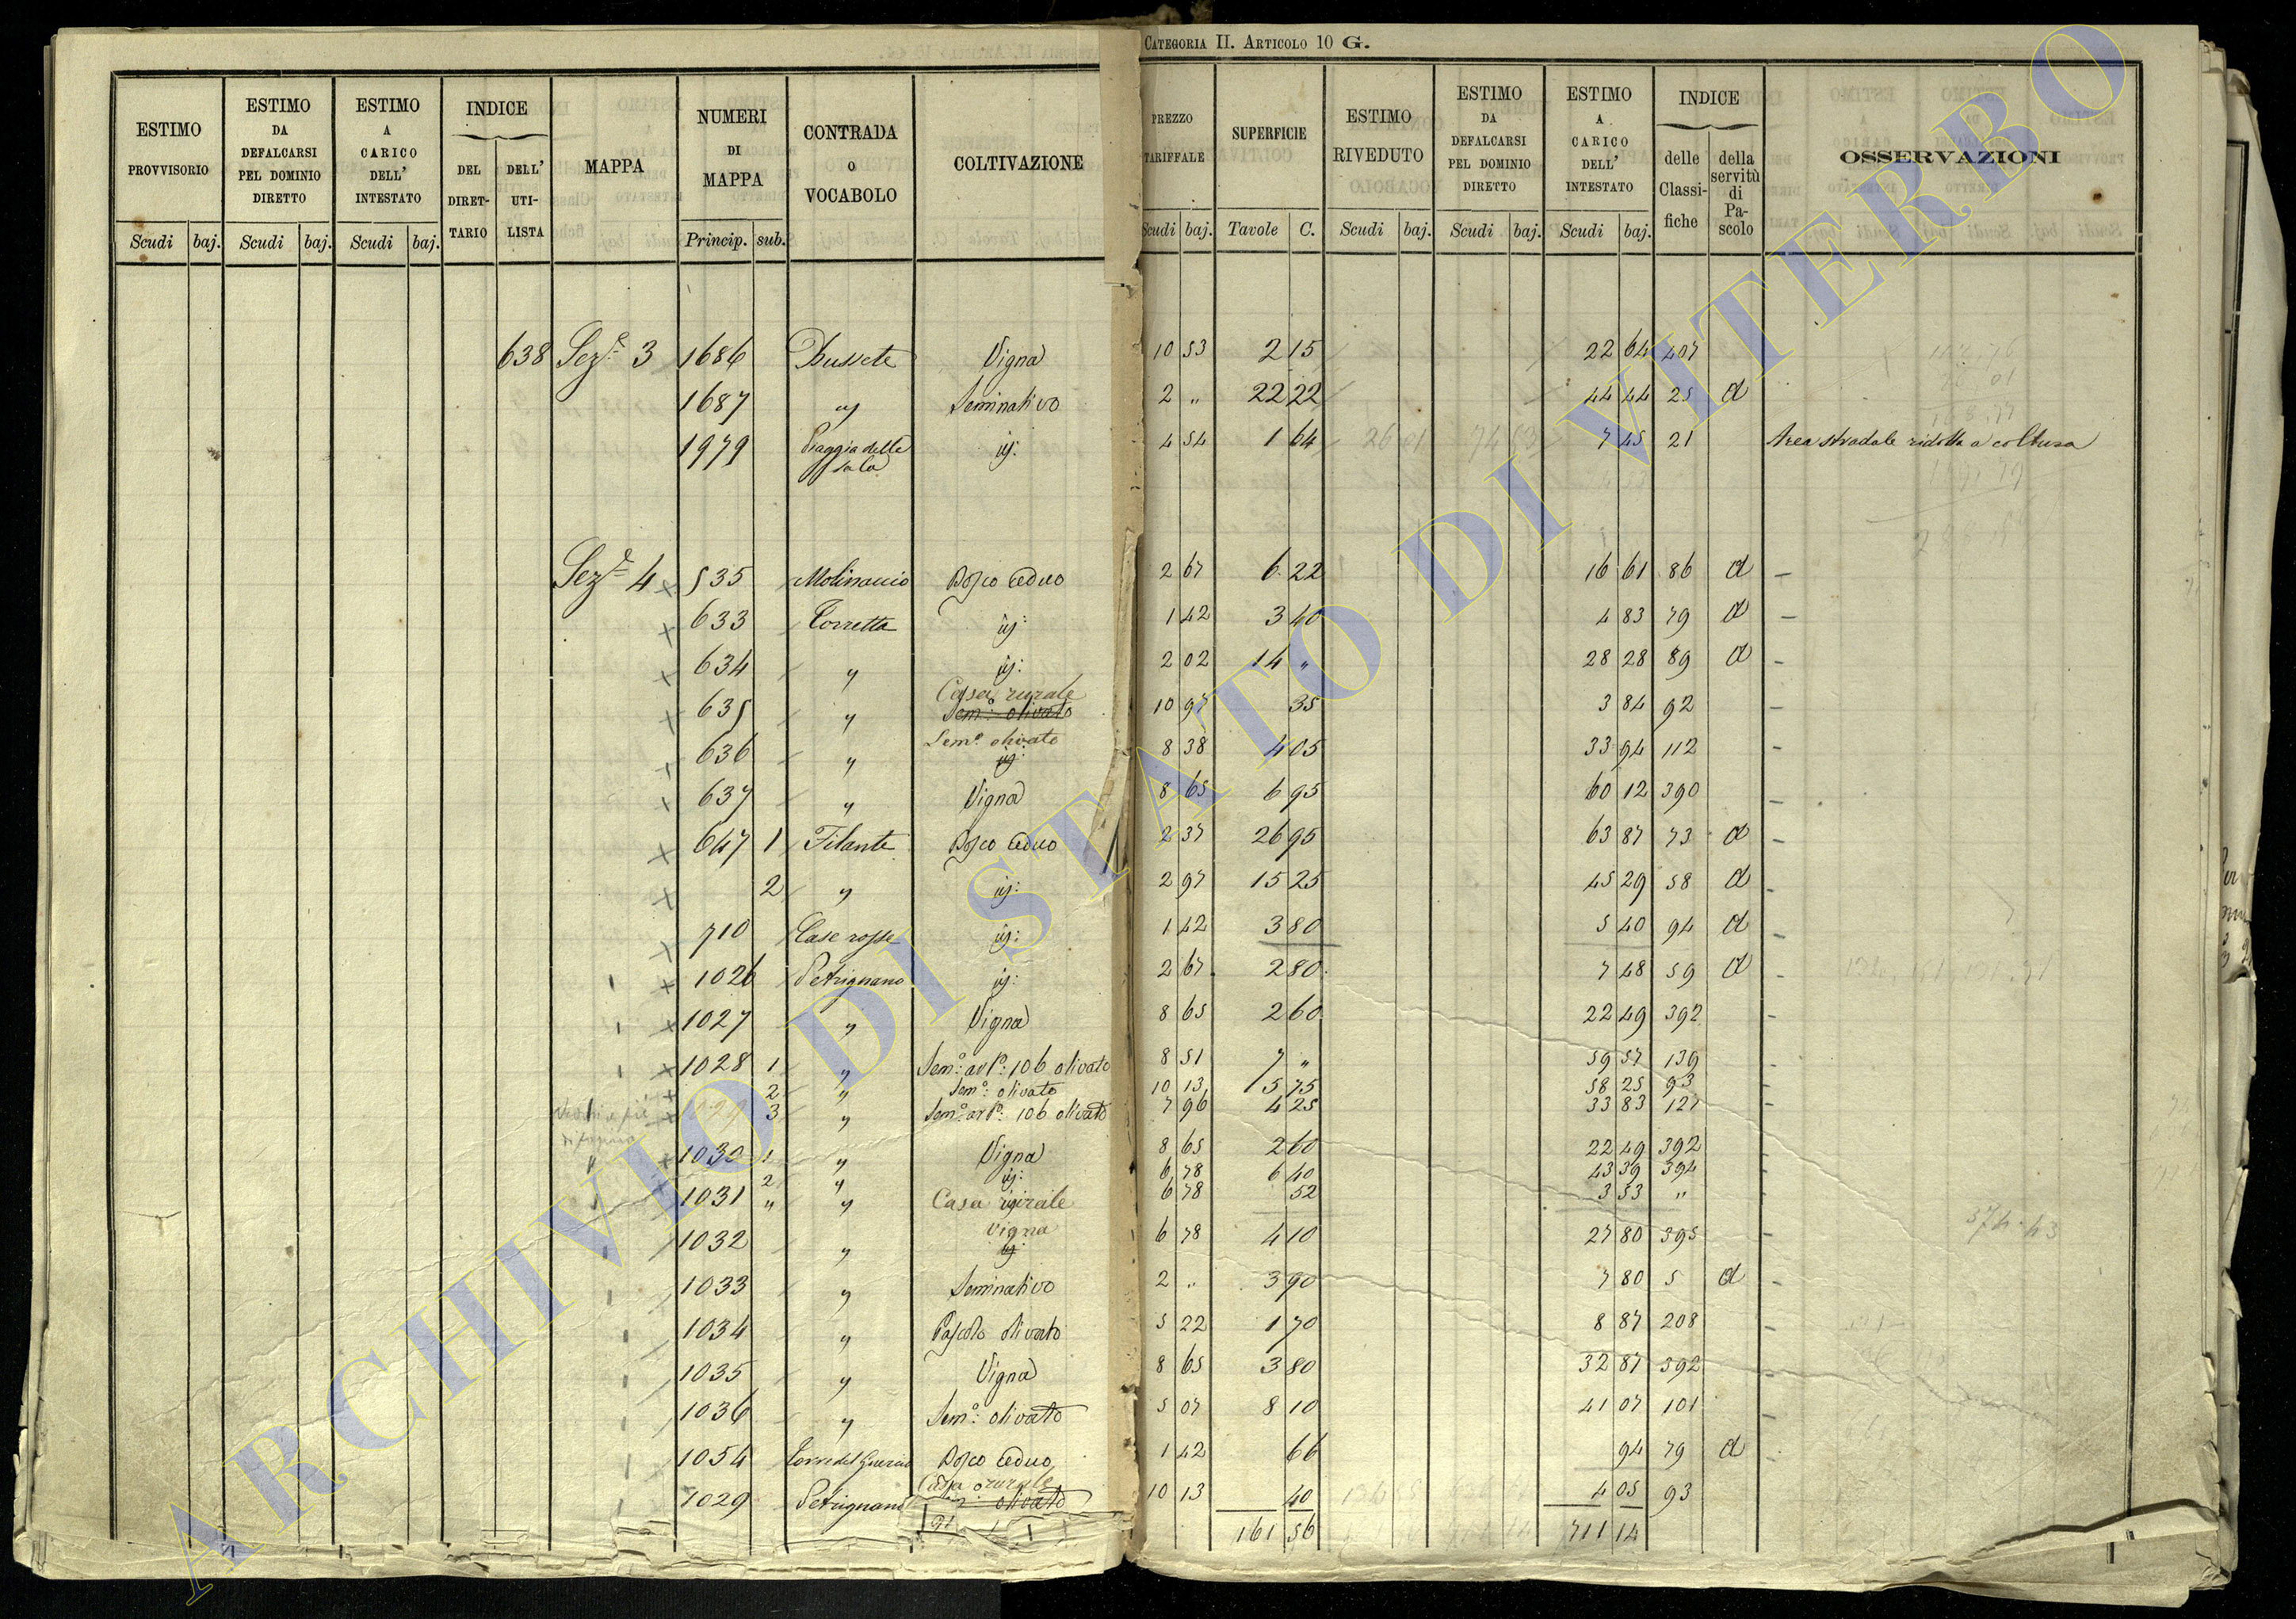 CATEGORIA II. ARTICOLO 10 G.
ESTIMO PROVVISORIO Scudi baj.
ESTIMO DA DEFALCARSI PEL DOMINIO DIRETTO Scudi baj.
ESTIMO A CARICO DELL' INTESTATO Scudi baj.
INDICE DEL DIRET-TARIO DELL' UTI-LISTA
MAPPA
NUMERI DI MAPPA Princip. sub.
CONTRADA O VOCABOLO
COLTIVAZIONE
PREZZO TARIFFALE Scudi baj.
SUPERFICIE Tavole C.
ESTIMO RIVEDUTO Scudi baj.
ESTIMO DA DEFALCARSI PEL DOMINIO DIRETTO Scudi baj.
ESTIMO A CARICO DELL' INTESTATO Scudi baj.
INDICE delle Classi-fiche della servitù di Pa-scolo
OSSERVAZIONI
638 Sez.e 3 1686 Vigna 10 53 2 15 22 64 407
1687 " Seminativo 2 " 22 22 44 44 25 a
1979 Piaggia della sala ig: 4 54 1 64 7 45 21 Area stradale ridotta a coltura
Sez.e 4 535 Molinaccio Bosco Ceduo 2 67 6 22 16 61 86 a
633 Torretta ig: 1 42 3 40 4 83 79 a
634 " ig: 2 02 14 " 28 28 89 a
635 " Casa rurale Sem.o olivato 10 97 35 3 84 92
636 " Sem.o olivato ig: 8 38 4 05 33 94 112
637 " Vigna 8 65 6 95 60 12 390
647 1 Filante Bosco Ceduo 2 37 26 95 63 87 73 a
2 " ig: 2 97 15 25 45 29 58 a
710 Case rosse ig: 1 42 3 80 5 40 94 a
1026 Petrignano ig: 2 67 2 80 7 48 59 a
1027 " Vigna 8 65 2 60 22 49 392
1028 1 " Sem.o arb.o 106 olivato 8 51 7 " 59 57 139
2 " Sem.o olivato 10 13 5 75 58 25 93
3 " Sem.o arb.o 106 olivato 7 96 4 25 33 83 127
1030 1 " Vigna 8 65 2 60 22 49 392
2 " ig: 6 78 6 40 43 39 394
1031 " " Casa rurale 6 78 52 3 53 "
1032 " Vigna ig: 6 78 4 10 27 80 395
1033 " Seminativo 2 " 3 90 7 80 5 a
1034 " Pascolo olivato 5 22 1 70 8 87 208
1035 " Vigna 8 65 3 80 32 87 392
1036 " Sem.o olivato 5 07 8 10 41 07 101
1054 Bosco Ceduo 1 42 66 94 79 a
1029 Petrignano Casa rurale olivato 10 13 40 4 05 93
161 56 711 14
374.43
ARCHIVIO DI STATO DI VITERBO